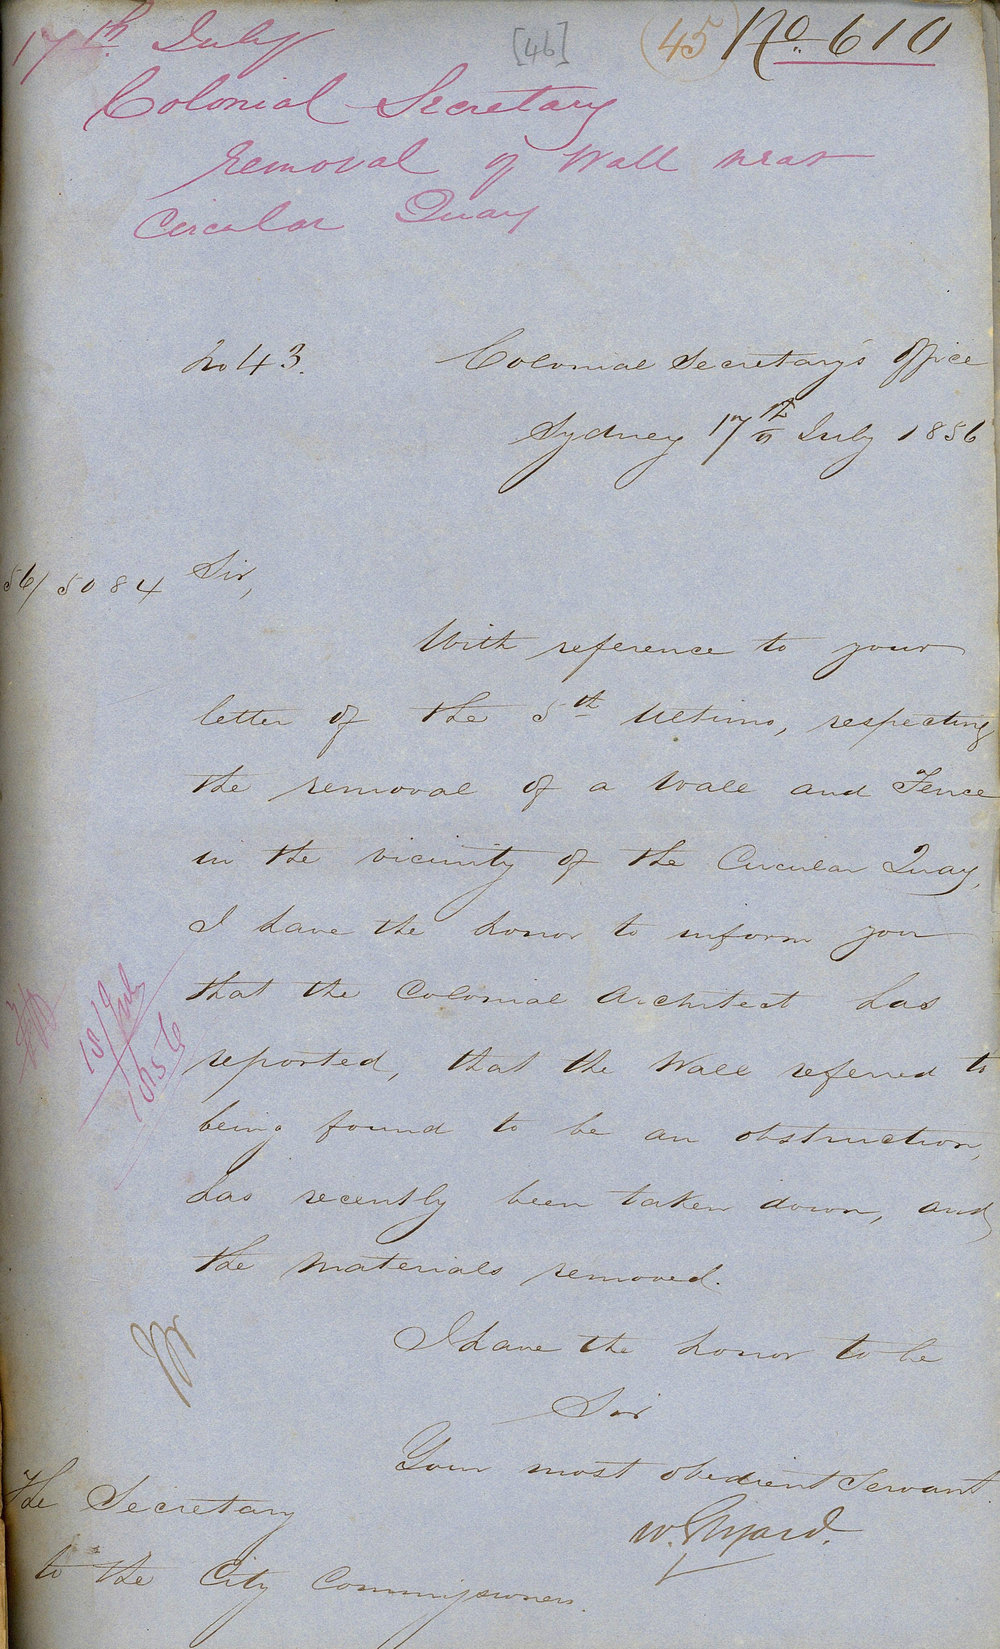 17th July
[46]
45
No 610
Colonial Secretary
Removal of Wall near
Circular Quay
No 43.
Colonial Secretary's Office
Sydney 17th July 1856
56/5084
Sir,
With reference to your
letter of the 5th Ultimo, respecting
the removal of a Wall and Fence
in the vicinity of the Circular Quay,
I have the honor to inform you
that the Colonial Architect has
reported, that the Wall referred to
being found to be an obstruction,
has recently been taken down, and
the Materials removed.
18/July
1856
I have the honor to be
Sir
Your most obedient Servant
W. Elyard.
The Secretary
to the City Commissioners.